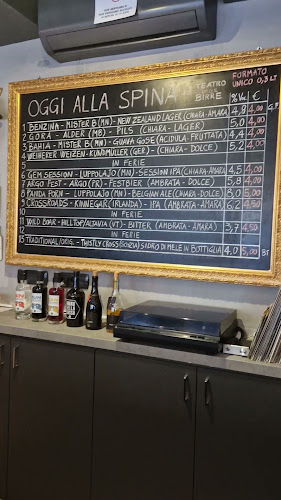 OGGI ALLA SPINA IL TEATRO BIRRE FORMATO UNICO 0,3 LT
%Vol €
1 BENZINA - MISTER B (MN) - NEW ZEALAND LAGER (CHIARA-AMARA) 4,9 4,00
2 GORA - ALDER (MB) - PILS (CHIARA - LAGER) 5,0 4,00
3 BAHIA - MISTER B (MN) - GUAVA GOSE (ACIDULA-FRUTTATA) 4,4 4,00
4 WEIHERER WEIZEN - KUNDMÜLLER (GER) - (CHIARA-DOLCE) 5,2 4,00
5 IN FERIE
6 GEM SESSION - LUPPOLAJO (MN) - SESSION IPA (CHIARA-AMARA) 4,5 4,00
7 ARGO FEST - ARGO (PR) - FESTBIER (AMBRATA - DOLCE) 5,8 4,00
8 PANDA PORN - LUPPOLAJO (MN) - BELGIAN ALE (CHIARA-DOLCE) 5,0 4,00
9 CROSSROADS - KINNEGAR (IRLANDA) - IPA (AMBRATA-AMARA) 6,2 4,50
10 IN FERIE
11 WILD BOAR - HILLTOP/ALTAVIA (VT) - BITTER (AMBRATA-AMARA) 3,7 4,50
12 IN FERIE
13 TRADITIONAL/ORIG. - THISTLY CROSS (SCOZIA) SIDRO DI MELE IN BOTTIGLIA 4,0 5,00